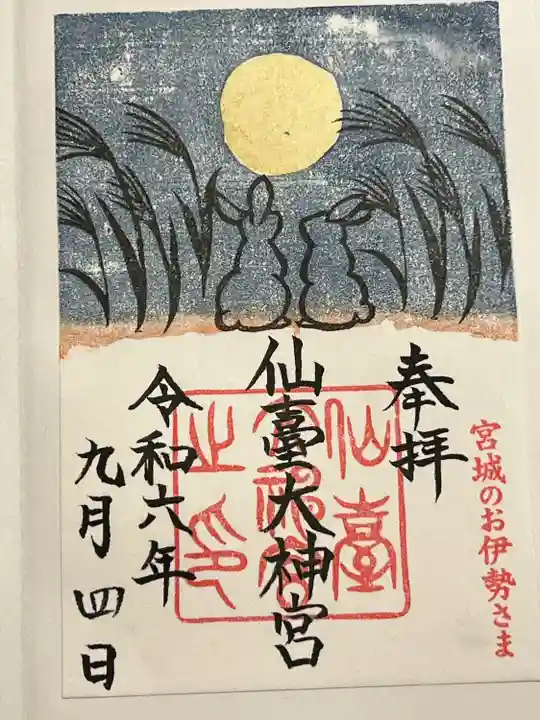 宮城のお伊勢さま
奉拝
仙臺大神宮
仙臺
大神宮
之印
令和六年
九月四日